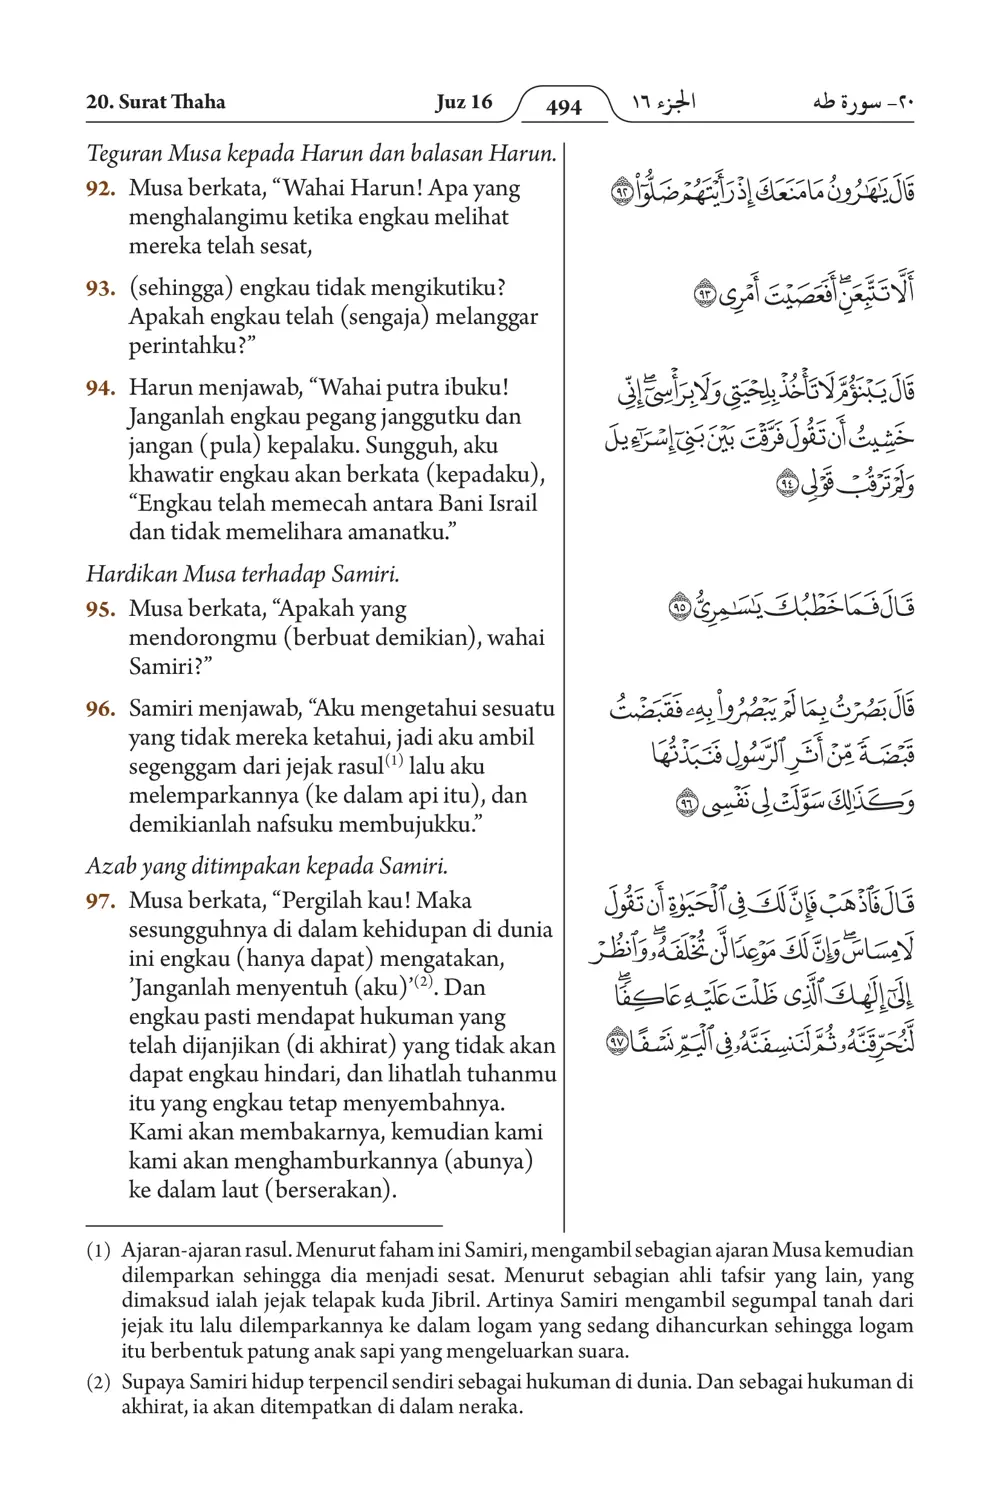 20. Surat Thaha
Juz 16
494
الجزء ١٦
٢٠- سورة طه
Teguran Musa kepada Harun dan balasan Harun.
92. Musa berkata, “Wahai Harun! Apa yang
menghalangimu ketika engkau melihat
mereka telah sesat,
قَالَ يَٰهَٰرُونُ مَا مَنَعَكَ إِذْ رَأَيْتَهُمْ ضَلُّوٓا۟ ٩٢
93. (sehingga) engkau tidak mengikutiku?
Apakah engkau telah (sengaja) melanggar
perintahku?”
أَلَّا تَتَّبِعَنِ ۖ أَفَعَصَيْتَ أَمْرِى ٩٣
94. Harun menjawab, “Wahai putra ibuku!
Janganlah engkau pegang janggutku dan
jangan (pula) kepalaku. Sungguh, aku
khawatir engkau akan berkata (kepadaku),
“Engkau telah memecah antara Bani Israil
dan tidak memelihara amanatku.”
قَالَ يَبْنَؤُمَّ لَا تَأْخُذْ بِلِحْيَتِى وَلَا بِرَأْسِىٓ ۖ إِنِّى
خَشِيتُ أَن تَقُولَ فَرَّقْتَ بَيْنَ بَنِىٓ إِسْرَٰٓءِيلَ
وَلَمْ تَرْقُبْ قَوْلِى ٩٤
Hardikan Musa terhadap Samiri.
95. Musa berkata, “Apakah yang
mendorongmu (berbuat demikian), wahai
Samiri?”
قَالَ فَمَا خَطْبُكَ يَٰسَٰمِرِىُّ ٩٥
96. Samiri menjawab, “Aku mengetahui sesuatu
yang tidak mereka ketahui, jadi aku ambil
segenggam dari jejak rasul(1) lalu aku
melemparkannya (ke dalam api itu), dan
demikianlah nafsuku membujukku.”
قَالَ بَصُرْتُ بِمَا لَمْ يَبْصُرُوا۟ بِهِۦ فَقَبَضْتُ
قَبْضَةً مِّنْ أَثَرِ ٱلرَّسُولِ فَنَبَذْتُهَا
وَكَذَٰلِكَ سَوَّلَتْ لِى نَفْسِى ٩٦
Azab yang ditimpakan kepada Samiri.
97. Musa berkata, “Pergilah kau! Maka
sesungguhnya di dalam kehidupan di dunia
ini engkau (hanya dapat) mengatakan,
’Janganlah menyentuh (aku)’(2). Dan
engkau pasti mendapat hukuman yang
telah dijanjikan (di akhirat) yang tidak akan
dapat engkau hindari, dan lihatlah tuhanmu
itu yang engkau tetap menyembahnya.
Kami akan membakarnya, kemudian kami
kami akan menghamburkannya (abunya)
ke dalam laut (berserakan).
قَالَ فَٱذْهَبْ فَإِنَّ لَكَ فِى ٱلْحَيَوٰةِ أَن تَقُولَ
لَا مِسَاسَ ۖ وَإِنَّ لَكَ مَوْعِدًا لَّن تُخْلَفَهُۥ ۖ وَٱنظُرْ
إِلَىٰٓ إِلَٰهِكَ ٱلَّذِى ظَلْتَ عَلَيْهِ عَاكِفًا ۖ
لَّنُحَرِّقَنَّهُۥ ثُمَّ لَنَنسِفَنَّهُۥ فِى ٱلْيَمِّ نَسْفًا ٩٧
(1) Ajaran-ajaran rasul. Menurut faham ini Samiri, mengambil sebagian ajaran Musa kemudian
dilemparkan sehingga dia menjadi sesat. Menurut sebagian ahli tafsir yang lain, yang
dimaksud ialah jejak telapak kuda Jibril. Artinya Samiri mengambil segumpal tanah dari
jejak itu lalu dilemparkannya ke dalam logam yang sedang dihancurkan sehingga logam
itu berbentuk patung anak sapi yang mengeluarkan suara.
(2) Supaya Samiri hidup terpencil sendiri sebagai hukuman di dunia. Dan sebagai hukuman di
akhirat, ia akan ditempatkan di dalam neraka.